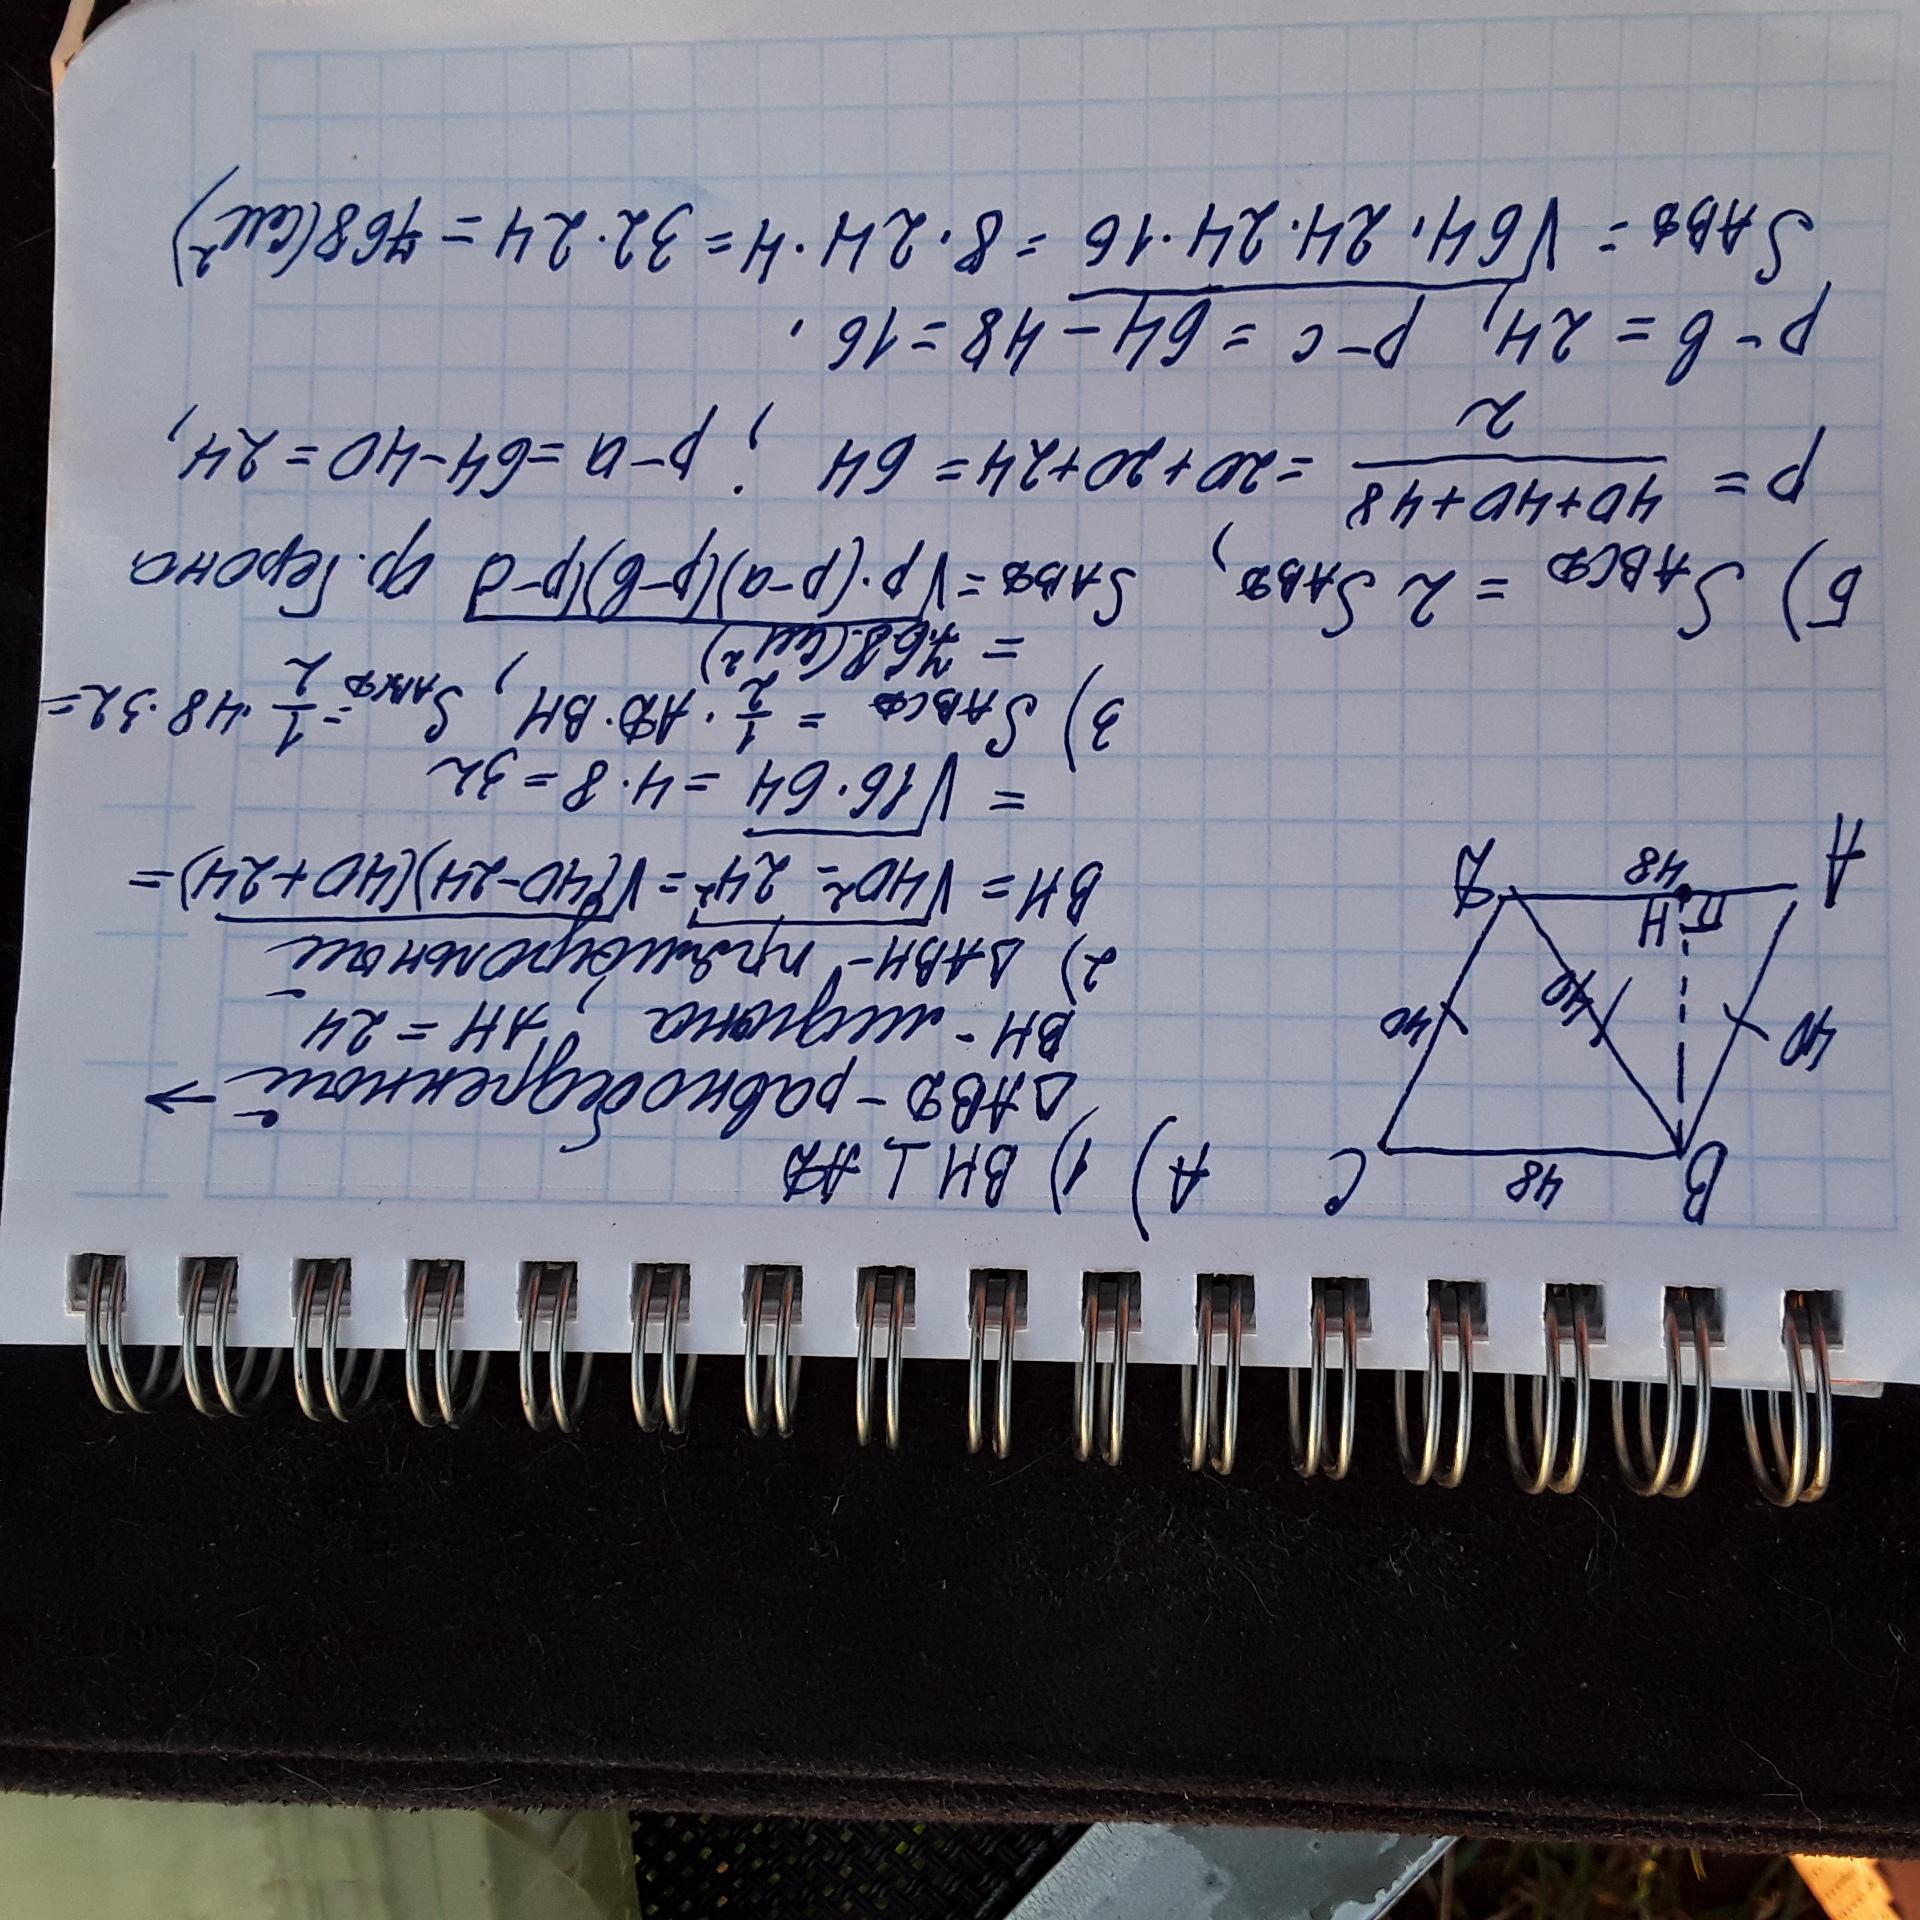 B 48 C
40 40 40
A H 48 D
А) 1) BH ⊥ AD
ΔABD - равнобедренный →
BH - медиана, AH = 24
2) ΔABH - прямоугольный
BH = √40² - 24² = √(40-24)(40+24) =
= √16·64 = 4·8 = 32
3) SABCD = 1/2 · AD·BH, SABCD = 1/2 · 48·32 =
= 768 (см²)
Б) SABCD = 2 SABD, SABD = √p·(p-a)(p-b)(p-c) ф. Герона
p = 40+40+48/2 = 20+20+24 = 64; p-a = 64-40 = 24,
p-b = 24, p-c = 64-48 = 16.
SABD = √64·24·24·16 = 8·24·4 = 32·24 = 768 (см²)